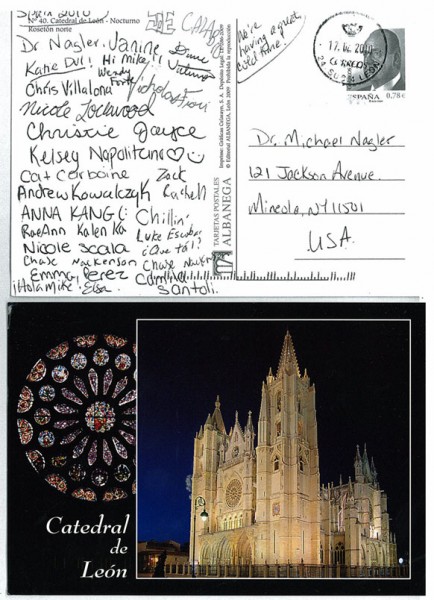 Spain 2010
Nº 40. Catedral de León - Nocturno
Rosetón norte
Dr Nagler. Janine
Katie Hi Mike!!
Wendy
Chris Villalona
Nicole Lockwood
Christie Jayce
Kelsey Napolitano
Cat Corbaine Zack
Andrew Kowalczyk
ANNA KANG (: Chillin'
RaeAnn Luke Escobar
Nicole Scala ¿Que tál?
Chase Nackenson
Emma Perez
¡Hola mike! Elsa.
Santoli.
We're
having a great,
cold time!
TARJETAS POSTALES
ALBANEGA
Imprime: Gráficas Gómayer, S. L. Depósito Legal
© Editorial ALBANEGA, León 2009 Prohibida la reproducción
CORREOS
LEON
ESPAÑA
0,78€
Dr. Michael Nagler
121 Jackson Avenue.
Mineola, NY 11501
USA.
Catedral
de
León